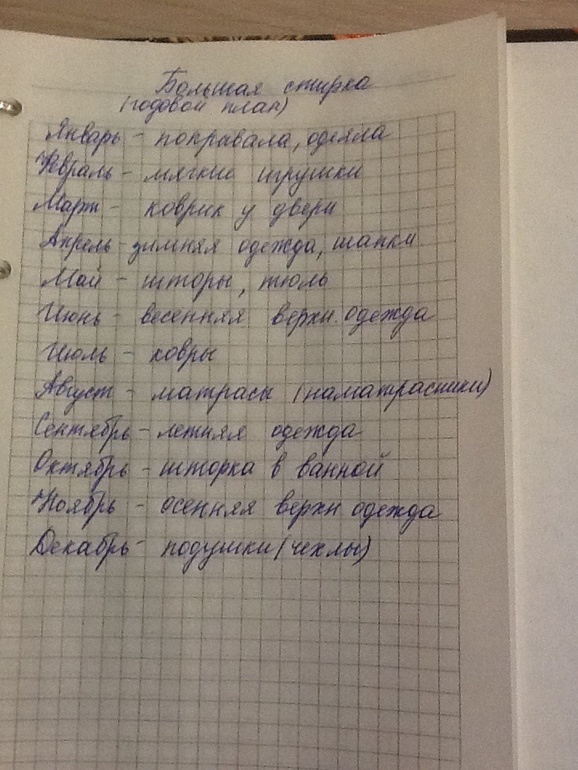 Большая стирка
(годовой план)
Январь - покрывала, одеяла
Февраль - мягкие игрушки
Март - коврик у двери
Апрель - зимняя одежда, шапки
Май - шторы, тюль
Июнь - весенняя верхн. одежда
Июль - ковры
Август - матрасы (наматрасники)
Сентябрь - летняя одежда
Октябрь - шторка в ванной
Ноябрь - осенняя верхн одежда
Декабрь - подушки (чехлы)